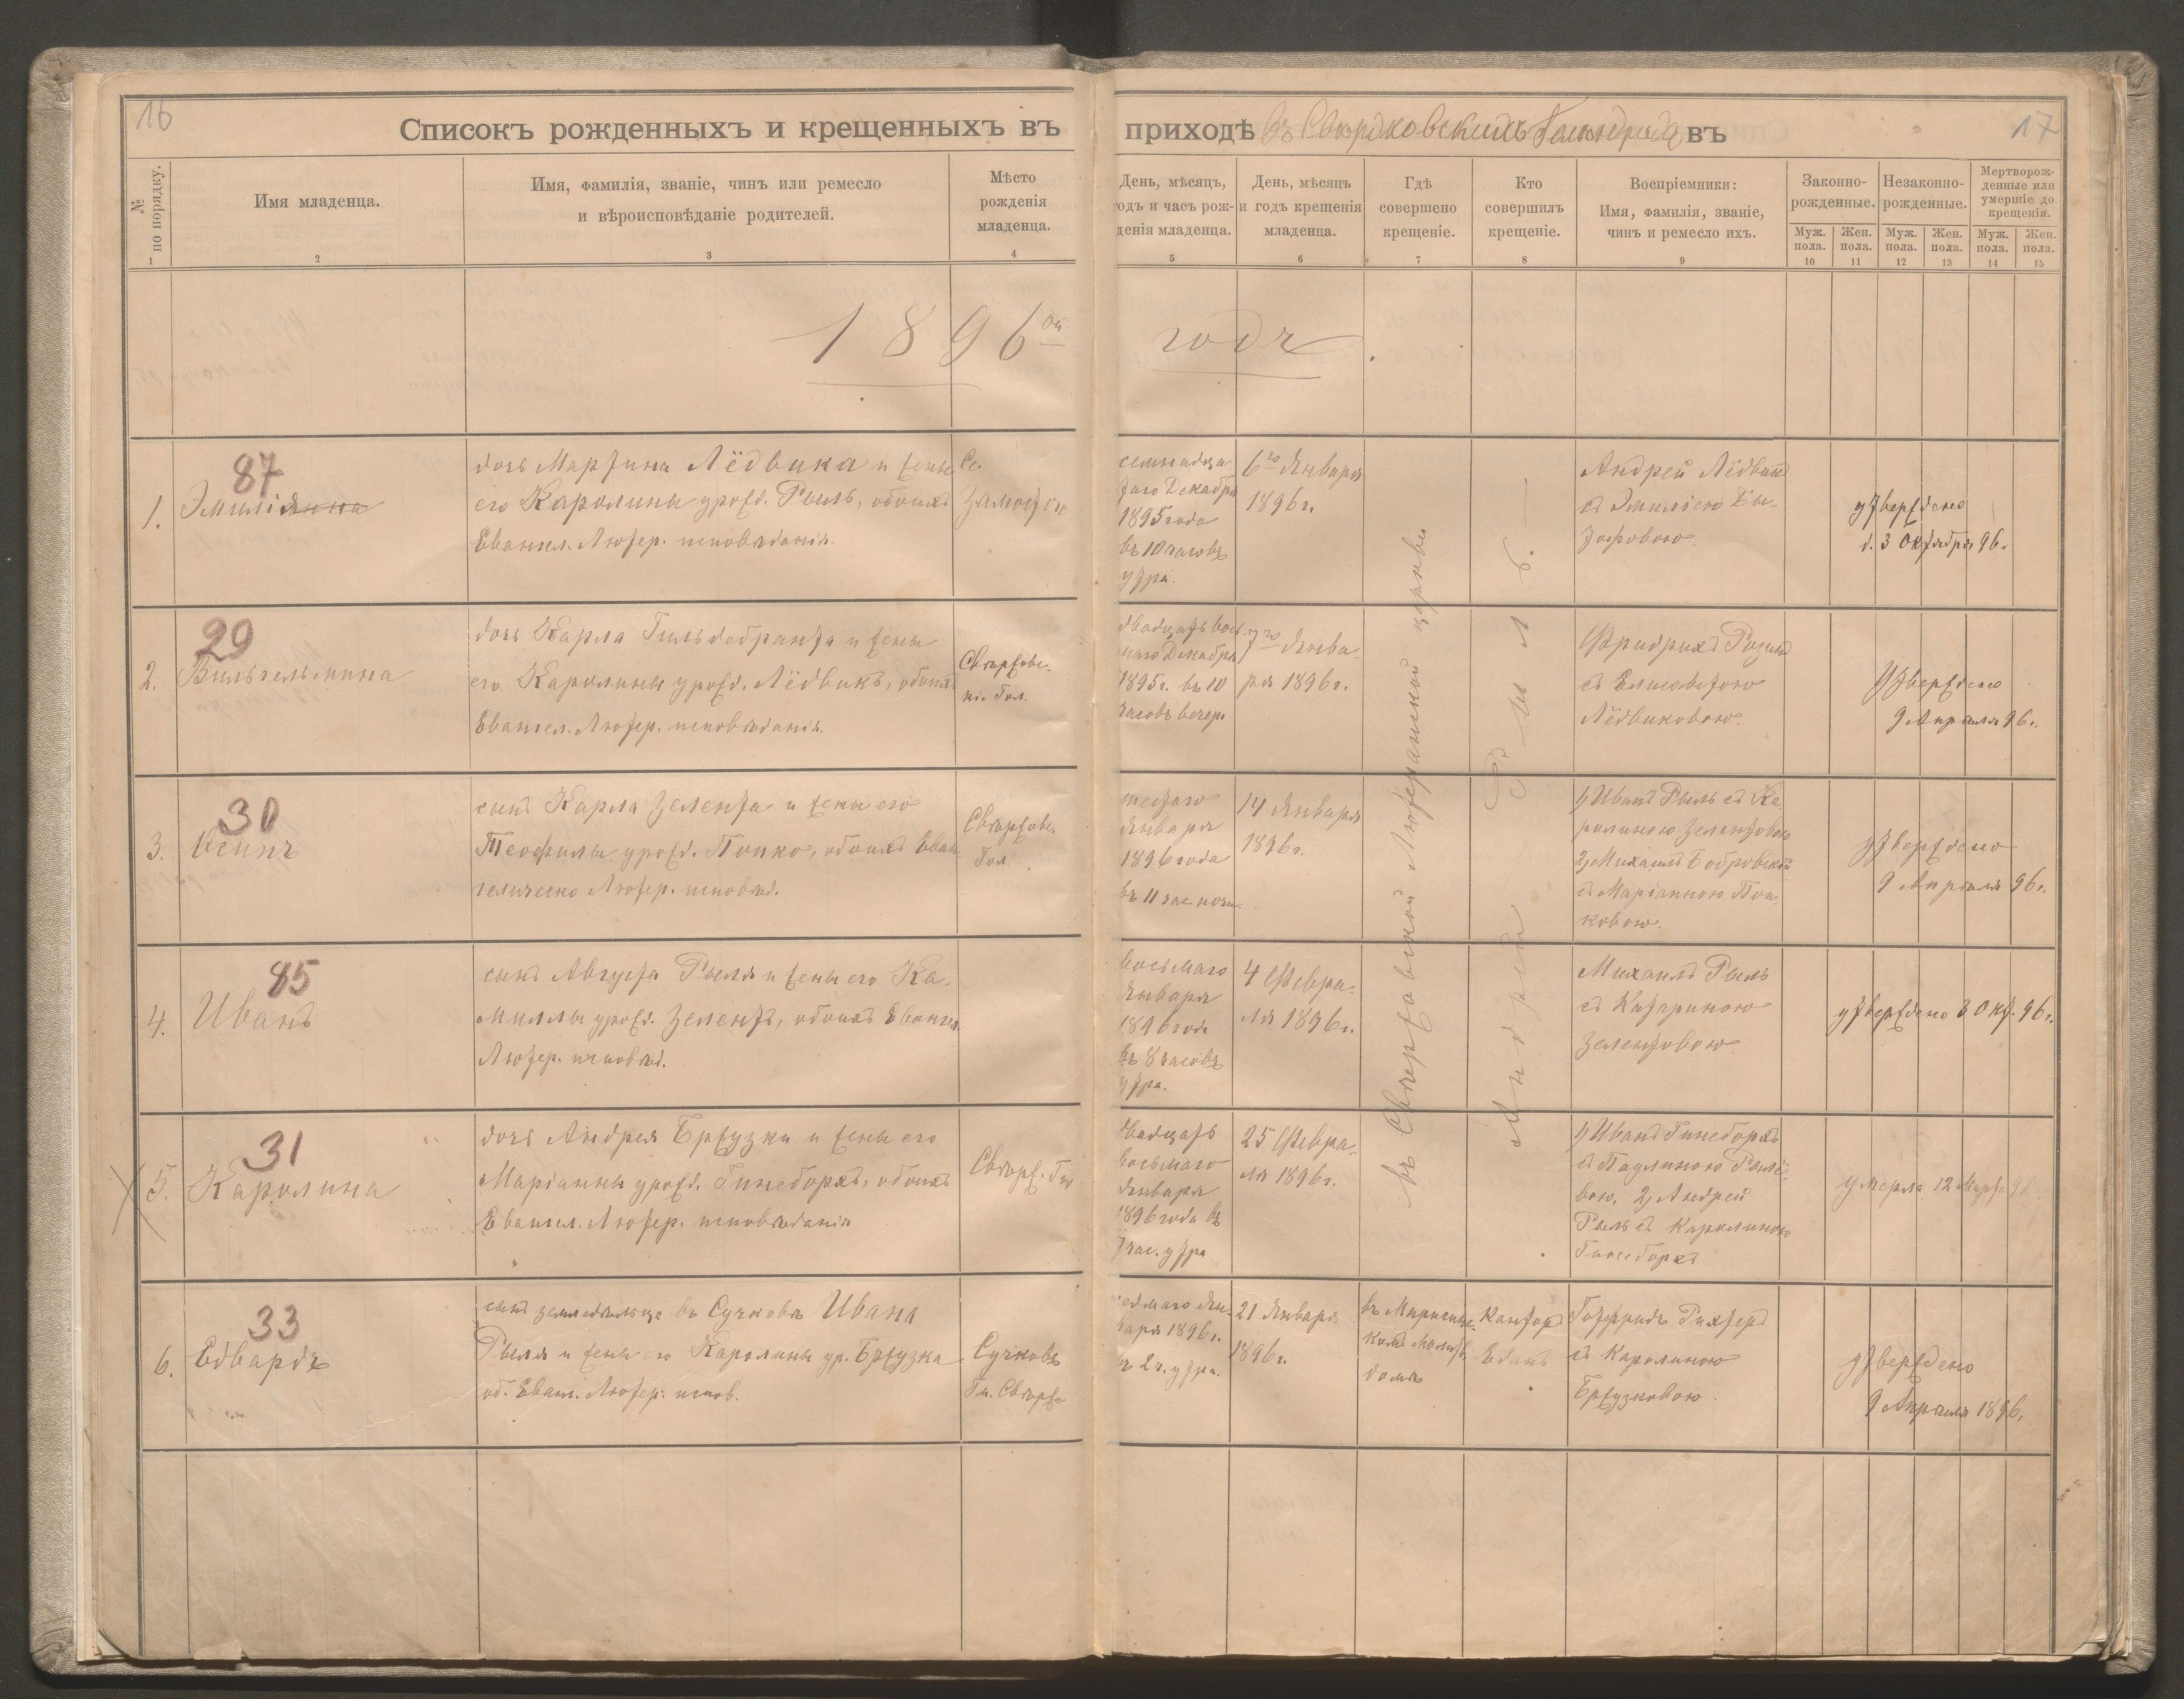 16
Списокъ рожденныхъ и крещенныхъ въ
приходѣ въ въ
17
№ по порядку.
Имя младенца.
Имя, фамилія, званіе, чинъ или ремесло
и вѣроисповѣданіе родителей.
Мѣсто
рожденія
младенца.
День, мѣсяцъ,
годъ и часъ рож-
денія младенца.
День, мѣсяцъ
и годъ крещенія
младенца.
Гдѣ
совершено
крещеніе.
Кто
совершилъ
крещеніе.
Воспріемники:
Имя, фамилія, званіе,
чинъ и ремесло ихъ.
Законно-
рожденные.
Незаконно-
рожденные.
Мертворож-
денные или
умершіе до
крещенія.
Муж. пола.
Жен. пола.
Муж. пола.
Жен. пола.
Муж. пола.
Жен. пола.
1 2 3 4 5 6 7 8 9 10 11 12 13 14 15
1896ой годъ.
87
1. Эмилі
дочь Мартина Лёдвика и жены
его Каролины урожд. Рыль, обоихъ
Евангел. Лютер. исповѣданія.
Се.
семнадца
таго Декабря
1895 года
въ 10 часовъ
утра.
6го Января
1896 г.
Андрей Лёдвикъ
съ Эмиліею
утверждено
д. 3 Октября 96.
29
2. Вильгельмина
дочь Карла Гильдебранта и жены
его Каролины урожд. Лёдвикъ, обоихъ
Евангел. Лютер. исповѣданія.
двадцать вось
маго Декабря
1895 г. въ 10
часовъ вечер.
7го Янва-
ря 1896 г.
Фридрихъ
съ Елисаветою
Лёдвиковою.
Утверждено
9 Апрѣля 96 г.
30
3. Осипъ
сынъ Карла Зелента и жены его
Теофилы урожд. Попко, обоихъ Еван
гелическо Лютер. исповѣд.
шестаго
Января
1896 года
въ 11 час ночи.
14 Января
1896 г.
1, Иванъ Рыль съ Ка
ролиною Зелентовою
2, Михаилъ Бобровскій
съ Маріанною Поп
ковою.
утверждено
9 Апрѣля 96 г.
85
4. Иванъ
сынъ Августа Рыля и жены его Ка-
миллы урожд. Зелентъ, обоихъ Евангел.
Лютер. исповѣд.
восьмаго
Января
1896 года
въ 8 часовъ
утра.
4 Февра-
ля 1896 г.
Михаилъ Рыль
съ Катариною
Зелентовою
утверждено 3 Окт. 96 г.
31
5. Каролина
дочь Андрея Бржузки и жены его
Маріанны урожд. Гинеборхъ, обоихъ
Евангел. Лютер. исповѣданія
двадцать
восьмаго
Января
1896 года въ
7 час. утра
25 Февра-
ля 1896 г.
1, Иванъ Гинеборхъ
съ Паулиною Рылё-
вою, 2, Андрей
Рыль съ Каролиною
Гинеборхъ
умерла 12 Март.
33
6. Едвардъ
сынъ земледѣльца въ Сучковѣ Ивана
Рыля и жены его Каролины ур. Бржузка
об. Еванг. Лютер. испов.
Сучковъ
седмаго Ян-
варя 1896 г.
въ 2 ч. утра.
21 Января
1896 г.
Канторъ
Готфридъ Рихтеръ
съ Каролиною
Бржузковою.
утверждено
9 Апрѣля 1896.
Лютеранской церкви
Андрей